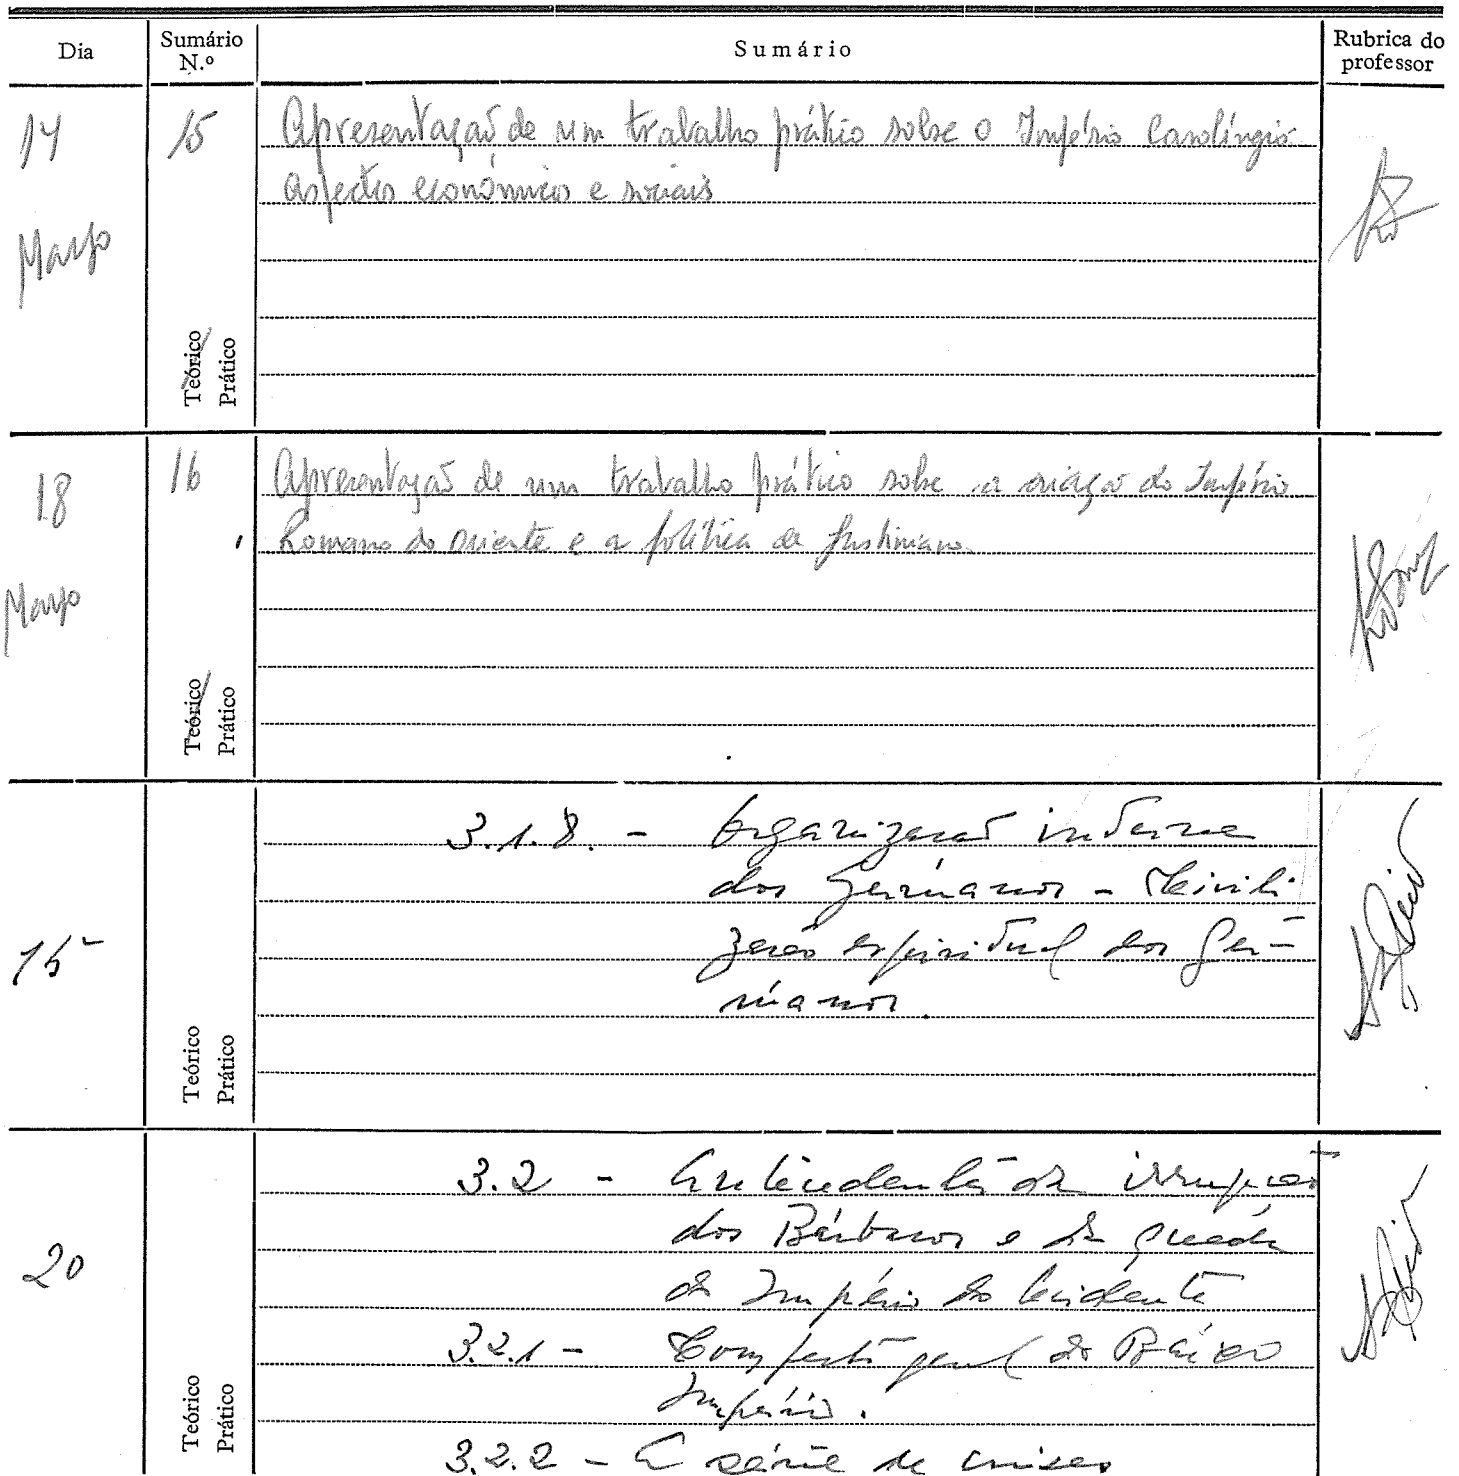 Dia
Sumário
N.º
Sumário
Rubrica do
professor
14
Março
15
Apresentação de um trabalho prático sobre o Império Carolíngio.
Aspectos económicos e sociais
Teórico
Prático
18
Março
16
Apresentação de um trabalho prático sobre a criação do Império
Romano do Oriente e a política de Justiniano.
Teórico
Prático
15
3.1.8. - Organização interna
dos Germanos - Civili
zação espiritual dos Ger-
manos.
Teórico
Prático
20
3.2 - Antecedentes da irrupção
dos Bárbaros e da queda
do Império do Ocidente
3.2.1 - geral do Baixo
Império.
3.2.2 - A série de crises
Teórico
Prático